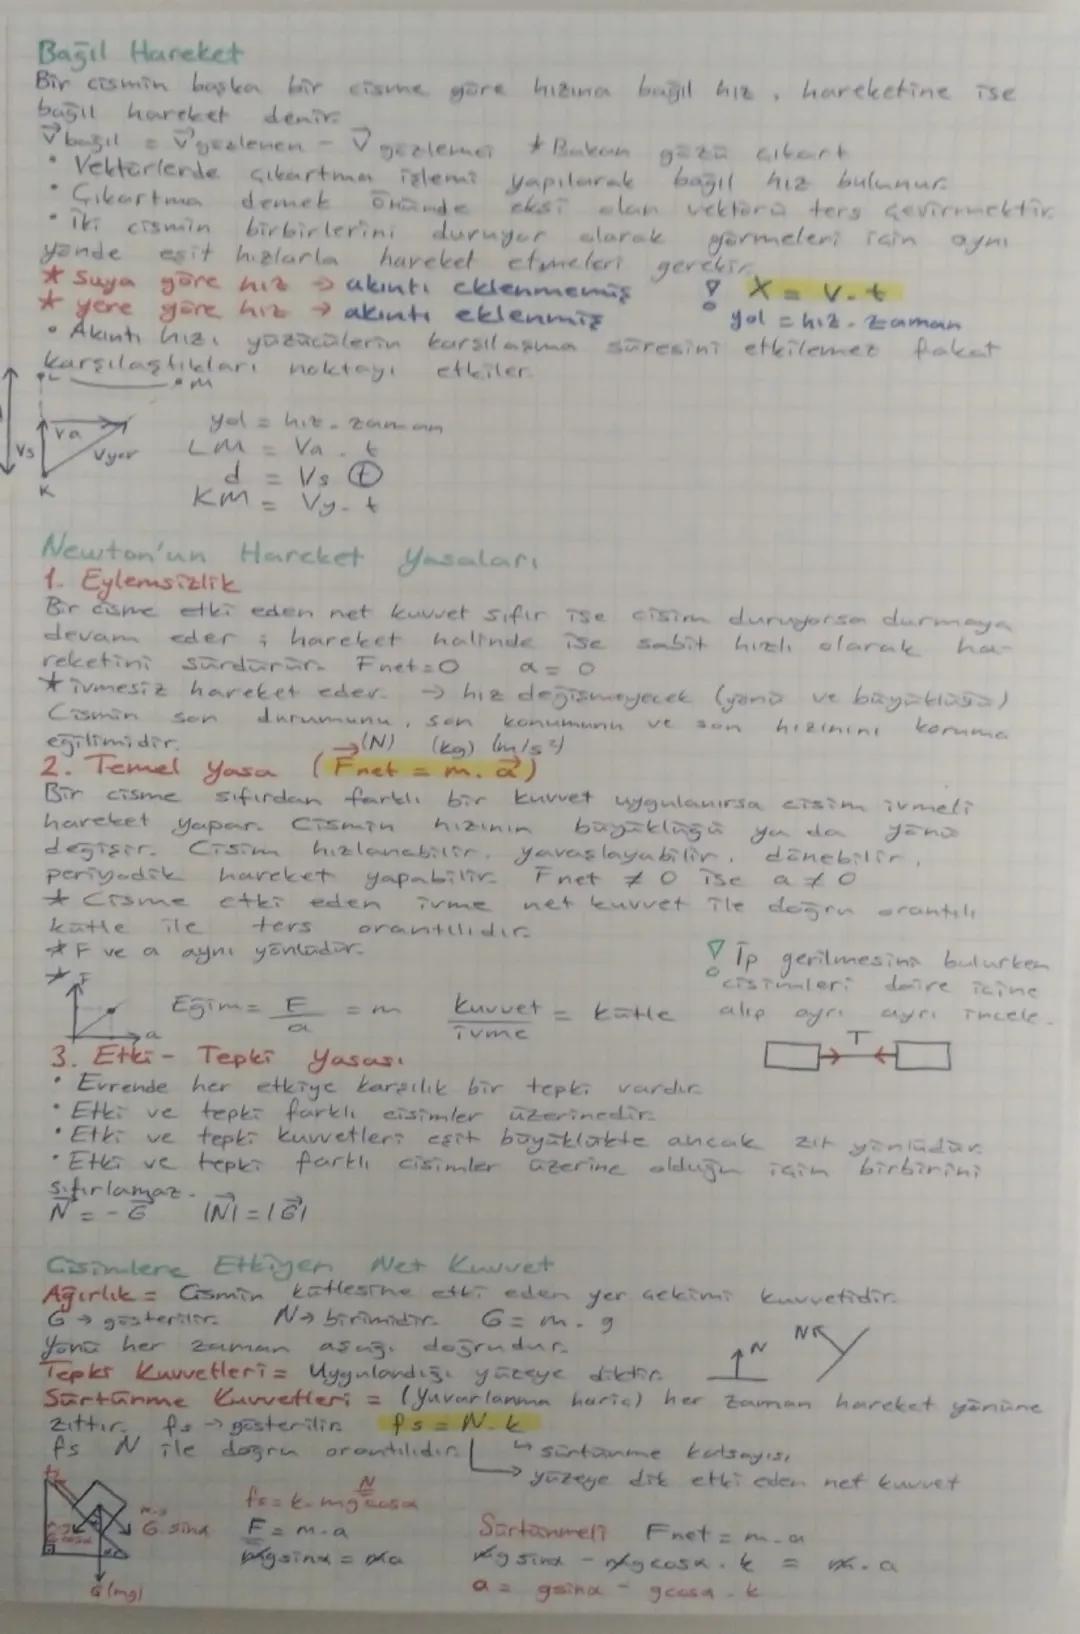 Bağıl Hareket
Bir cismin başka bir cisme göre hızına bağıl hız, hareketine ise
bağıl hareket denir.
V bağıl = V gözlenen - V gözlemci * Bakan gözü çıkart
• Vektörlerde çıkartma işlemi yapılarak bağıl hız bulunur.
• Çıkartma demek önünde eksi olan vektörü ters çevirmektir.
• İki cismin birbirlerini duruyor olarak görmeleri için aynı
yönde eşit hızlarla hareket etmeleri gerekir.
* Suya göre hız → akıntı eklenmemiş
* yere göre hız → akıntı eklenmiş
X = V.t
yol = hız.zaman
• Akıntı hızı yüzücülerin karşılaşma süresini etkilemez fakat
karşılaştıkları noktayı etkiler.
L M
Va
Vs Vyer
K
yol = hız.zaman
LM = Va.t
d = Vs t
KM = Vy.t
Newton'un Hareket Yasaları
1. Eylemsizlik
Bir cisme etki eden net kuvvet sıfır ise cisim duruyorsa durmaya
devam eder; hareket halinde ise sabit hızlı olarak ha-
reketini sürdürür. Fnet=0 a=0
* ivmesiz hareket eder. → hız değişmeyecek (yönü ve büyüklüğü)
Cismin son durumunu, son konumunu ve son hızınını koruma
eğilimidir.
(N) (kg) (m/s²)
2. Temel Yasa (Fnet = m.a)
Bir cisme sıfırdan farklı bir kuvvet uygulanırsa cisim ivmeli
hareket yapar. Cismin hızının büyüklüğü ya da yönü
değişir. Cisim hızlanabilir, yavaşlayabilir, dönebilir,
periyodik hareket yapabilir. Fnet ≠ 0 ise a ≠ 0
* Cisme etki eden ivme net kuvvet ile doğru orantılı
kütle ile ters orantılıdır.
* F ve a aynı yönlüdür.
* F
a
Eğim = F/a = m Kuvvet/ivme = kütle
İp gerilmesini bulurken
cisimleri daire içine
alıp ayrı ayrı incele.
T
3. Etki - Tepki Yasası
• Evrende her etkiye karşılık bir tepki vardır.
• Etki ve tepki farklı cisimler üzerinedir.
• Etki ve tepki kuvvetleri eşit büyüklükte ancak zıt yönlüdür.
• Etki ve tepki farklı cisimler üzerine olduğu için birbirini
sıfırlamaz.
N = -G |N| = |G|
Cisimlere Etkiyen Net Kuvvet
Ağırlık = Cismin kütlesine etki eden yer çekimi kuvvetidir.
G → gösterilir. N → birimidir. G = m.g
Yönü her zaman aşağı doğrudur.
N N
Tepki Kuvvetleri = Uygulandığı yüzeye diktir.
Sürtünme Kuvvetleri = (Yuvarlanma hariç) her zaman hareket yönüne
zıttır. fs → gösterilir. fs = N.k
fs N ile doğru orantılıdır. ↳ sürtünme katsayısı
→ yüzeye dik etki eden net kuvvet
G.sinα
G (mg)
N
fs = k.mgcosα
F = m.a
mgsinα = ma
Sürtünmeli Fnet = m.a
mgsinα - mgcosα.k = m.a
a = gsinα - gcosα.k